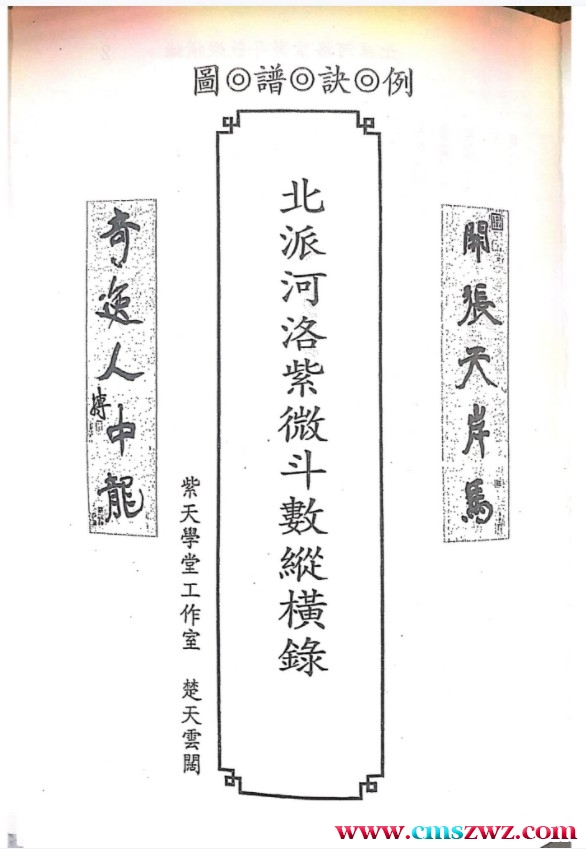 圖◎譜◎訣◎例
開張天岸馬
北派河洛紫微斗數縱橫錄
紫天學堂工作室 楚天雲闊
奇逸人中龍
摶
www.cmszwz.com